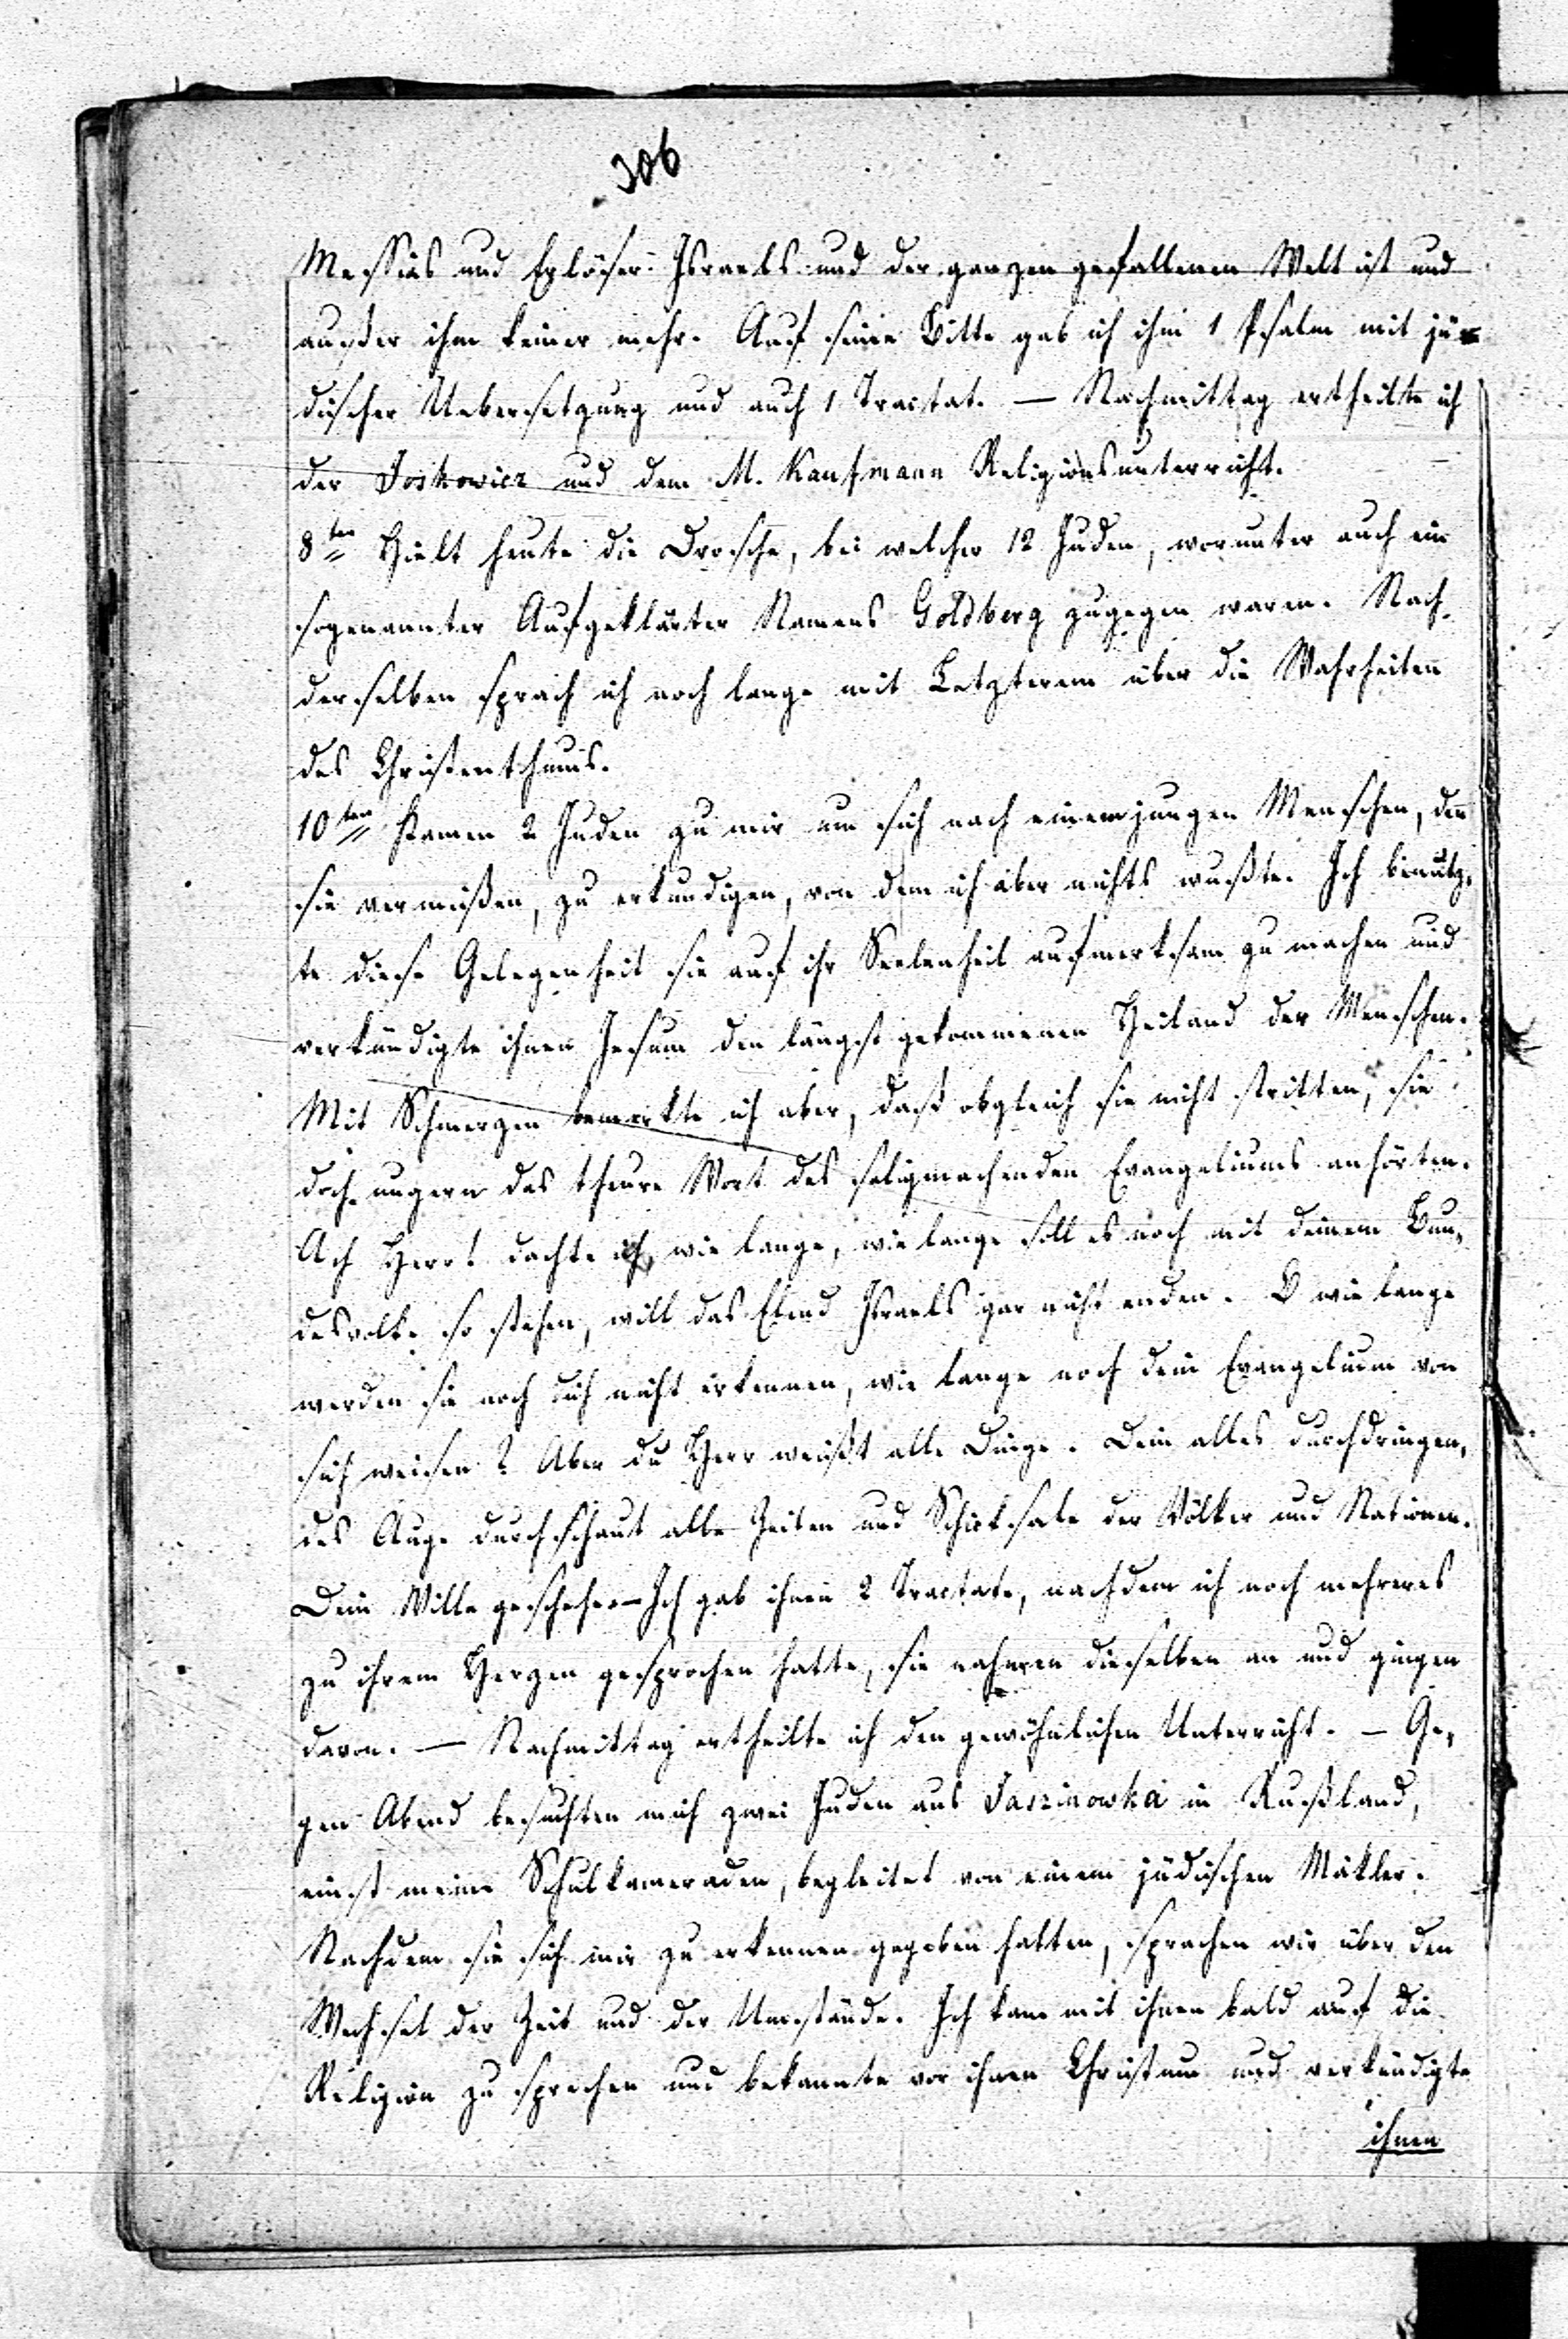 306
Messias und Erlöser Israels und der ganzen gefallenen Welt ist und
außer ihm keiner mehr. Auf seine Bitte gab ich ihm 1 Psalm mit jü-
discher Uebersetzung und auch 1 Tractat. — Nachmittag ertheilte ich
der Joskowicz und dem M. Kaufmann Religionsunterricht.
8ten Hielt heute die Drosche, bei welcher 12 Juden, worunter auch ein
sogenannter Aufgeklärter Namens Goldberg zugegen waren. Nach
derselben sprach ich noch lange mit Letzterem über die Wahrheiten
des Christenthums.
10ten Kamen 2 Juden zu mir um sich nach einem jungen Menschen, den
sie vermißen, zu erkundigen, von dem ich aber nichts wußte. Ich benutz-
te diese Gelegenheit sie auf ihr Seelenheil aufmerksam zu machen und
verkündigte ihnen Jesum den längst gekommenen Heiland der Menschen.
Mit Schmerzen bemerkte ich aber, daß obgleich sie nicht stritten, sie
doch ungern das theure Wort des seligmachenden Evangeliums anhörten.
Ach Herr! dachte ich, wie lange, wie lange soll es noch mit deinem Bun-
desvolke so stehen, will das Elend Israels gar nicht enden. O wie lange
werden sie noch dich nicht erkennen, wie lange noch dein Evangelium von
sich weisen? Aber du Herr weißt alle Dinge. Dein alles durchdringen-
des Auge durchschaut alle Zeiten und Schicksale der Völker und Nationen.
Dein Wille geschehe. — Ich gab ihnen 2 Tractate, nachdem ich noch mehreres
zu ihrem Herzen gesprochen hatte, sie nahmen dieselben an und gingen
davon. — Nachmittag ertheilte ich den gewöhnlichen Unterricht. — Ge-
gen Abend besuchten mich zwei Juden aus Jaszinowka in Rußland,
einst meine Schulkameraden, begleitet von einem jüdischen Mäkler.
Nachdem sie sich mir zu erkennen gegeben hatten, sprachen wir über den
Wechsel der Zeit und der Umstände. Ich kam mit ihnen bald auf die
Religion zu sprechen und bekannte vor ihnen Christum und verkündigte
ihnen